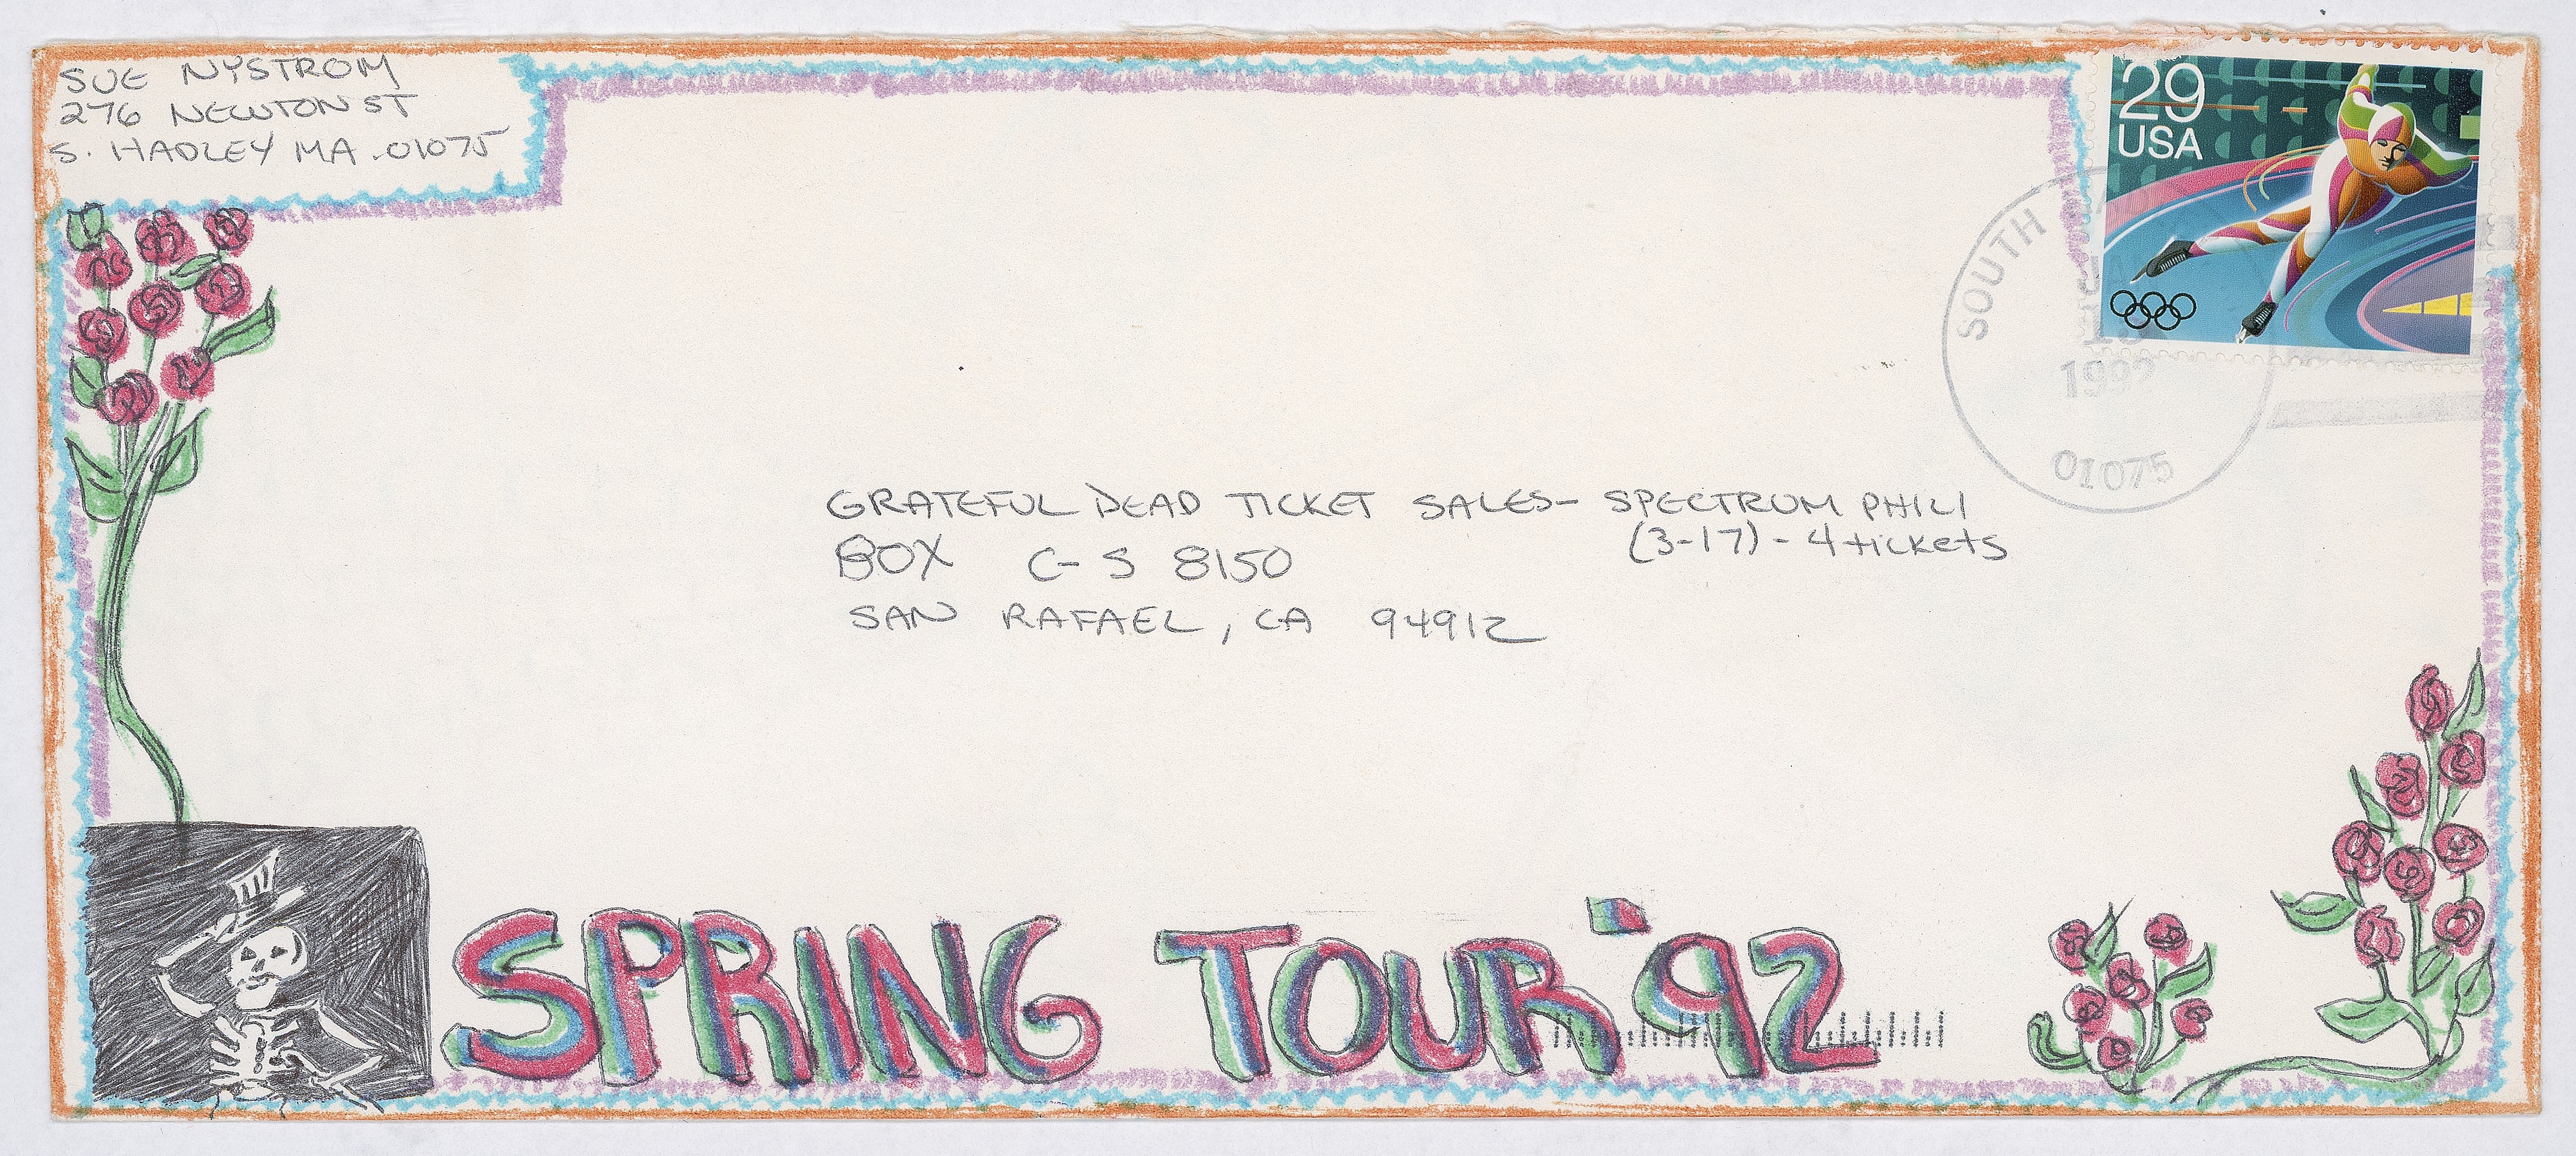 SUE NYSTROM
276 NEWTON ST
S. HADLEY MA. 01075
29
USA
SOUTH
1992
01075
GRATEFUL DEAD TICKET SALES- SPECTRUM PHILI
(3-17) - 4 tickets
BOX C-S 8150
SAN RAFAEL, CA 94912
SPRING TOUR '92